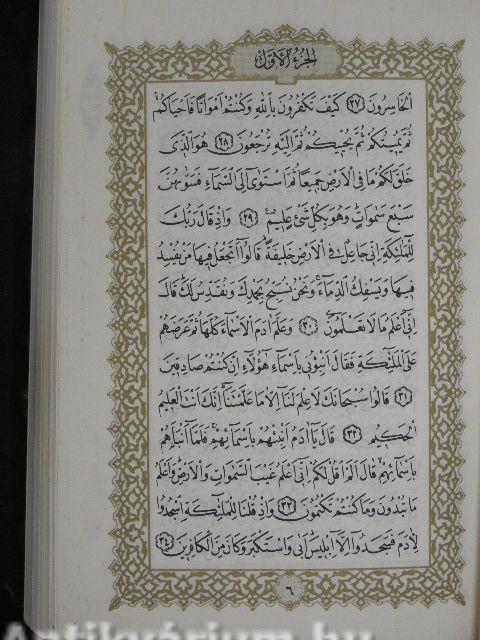 الجزء الأول
الخاسرون ﴿٢٧﴾ كيف تكفرون بالله وكنتم امواتا فاحياكم
ثم يميتكم ثم يحييكم ثم اليه ترجعون ﴿٢٨﴾ هو الذى
خلق لكم ما فى الارض جميعا ثم استوى الى السماء فسويهن
سبع سموات وهو بكل شئ عليم ﴿٢٩﴾ واذ قال ربك
للملئكة انى جاعل فى الارض خليفة قالوا اتجعل فيها من يفسد
فيها ويسفك الدماء ونحن نسبح بحمدك ونقدس لك قال
انى اعلم ما لا تعلمون ﴿٣٠﴾ وعلم ادم الاسماء كلها ثم عرضهم
على الملئكة فقال انبئونى باسماء هؤلاء ان كنتم صادقين
﴿٣١﴾ قالوا سبحانك لا علم لنا الا ما علمتنا انك انت العليم
الحكيم ﴿٣٢﴾ قال يا ادم انبئهم باسمائهم فلما انباهم
باسمائهم قال الم اقل لكم انى اعلم غيب السموات والارض واعلم
ما تبدون وما كنتم تكتمون ﴿٣٣﴾ واذ قلنا للملئكة اسجدوا
لادم فسجدوا الا ابليس ابى واستكبر وكان من الكافرين ﴿٣٤﴾
٦
Antikvárium.hu